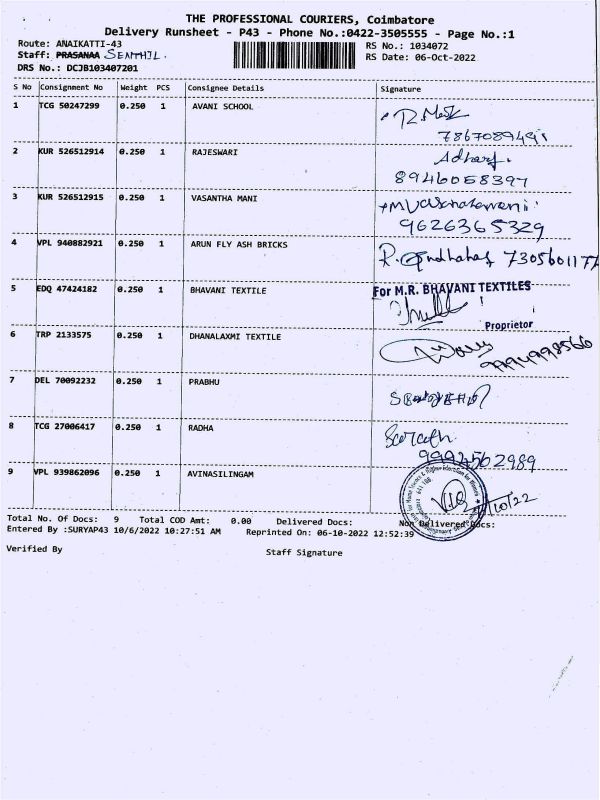 THE PROFESSIONAL COURIERS, Coimbatore
Delivery Runsheet - P43 - Phone No.:0422-3505555 - Page No.:1
Route: ANAIKATTI-43 RS No.: 1034072
Staff: PRASANAA SENTHIL. RS Date: 06-Oct-2022
DRS No.: DCJB103407201
S No Consignment No Weight PCS Consignee Details Signature
1 TCG 50247299 0.250 1 AVANI SCHOOL
2 KUR 526512914 0.250 1 RAJESWARI
8946058397
3 KUR 526512915 0.250 1 VASANTHA MANI
9626365329
4 VPL 940882921 0.250 1 ARUN FLY ASH BRICKS 7305601177
5 EDQ 47424182 0.250 1 BHAVANI TEXTILE For M.R. BHAVANI TEXTILES
Proprietor
6 TRP 2133575 0.250 1 DHANALAXMI TEXTILE 9994998566
7 DEL 70092232 0.250 1 PRABHU
8 TCG 27006417 0.250 1 RADHA Sarath
9994562989
9 VPL 939862096 0.250 1 AVINASILINGAM
Total No. Of Docs: 9 Total COD Amt: 0.00 Delivered Docs: Non Delivered Docs:
Entered By :SURYAP43 10/6/2022 10:27:51 AM Reprinted On: 06-10-2022 12:52:39
Verified By Staff Signature